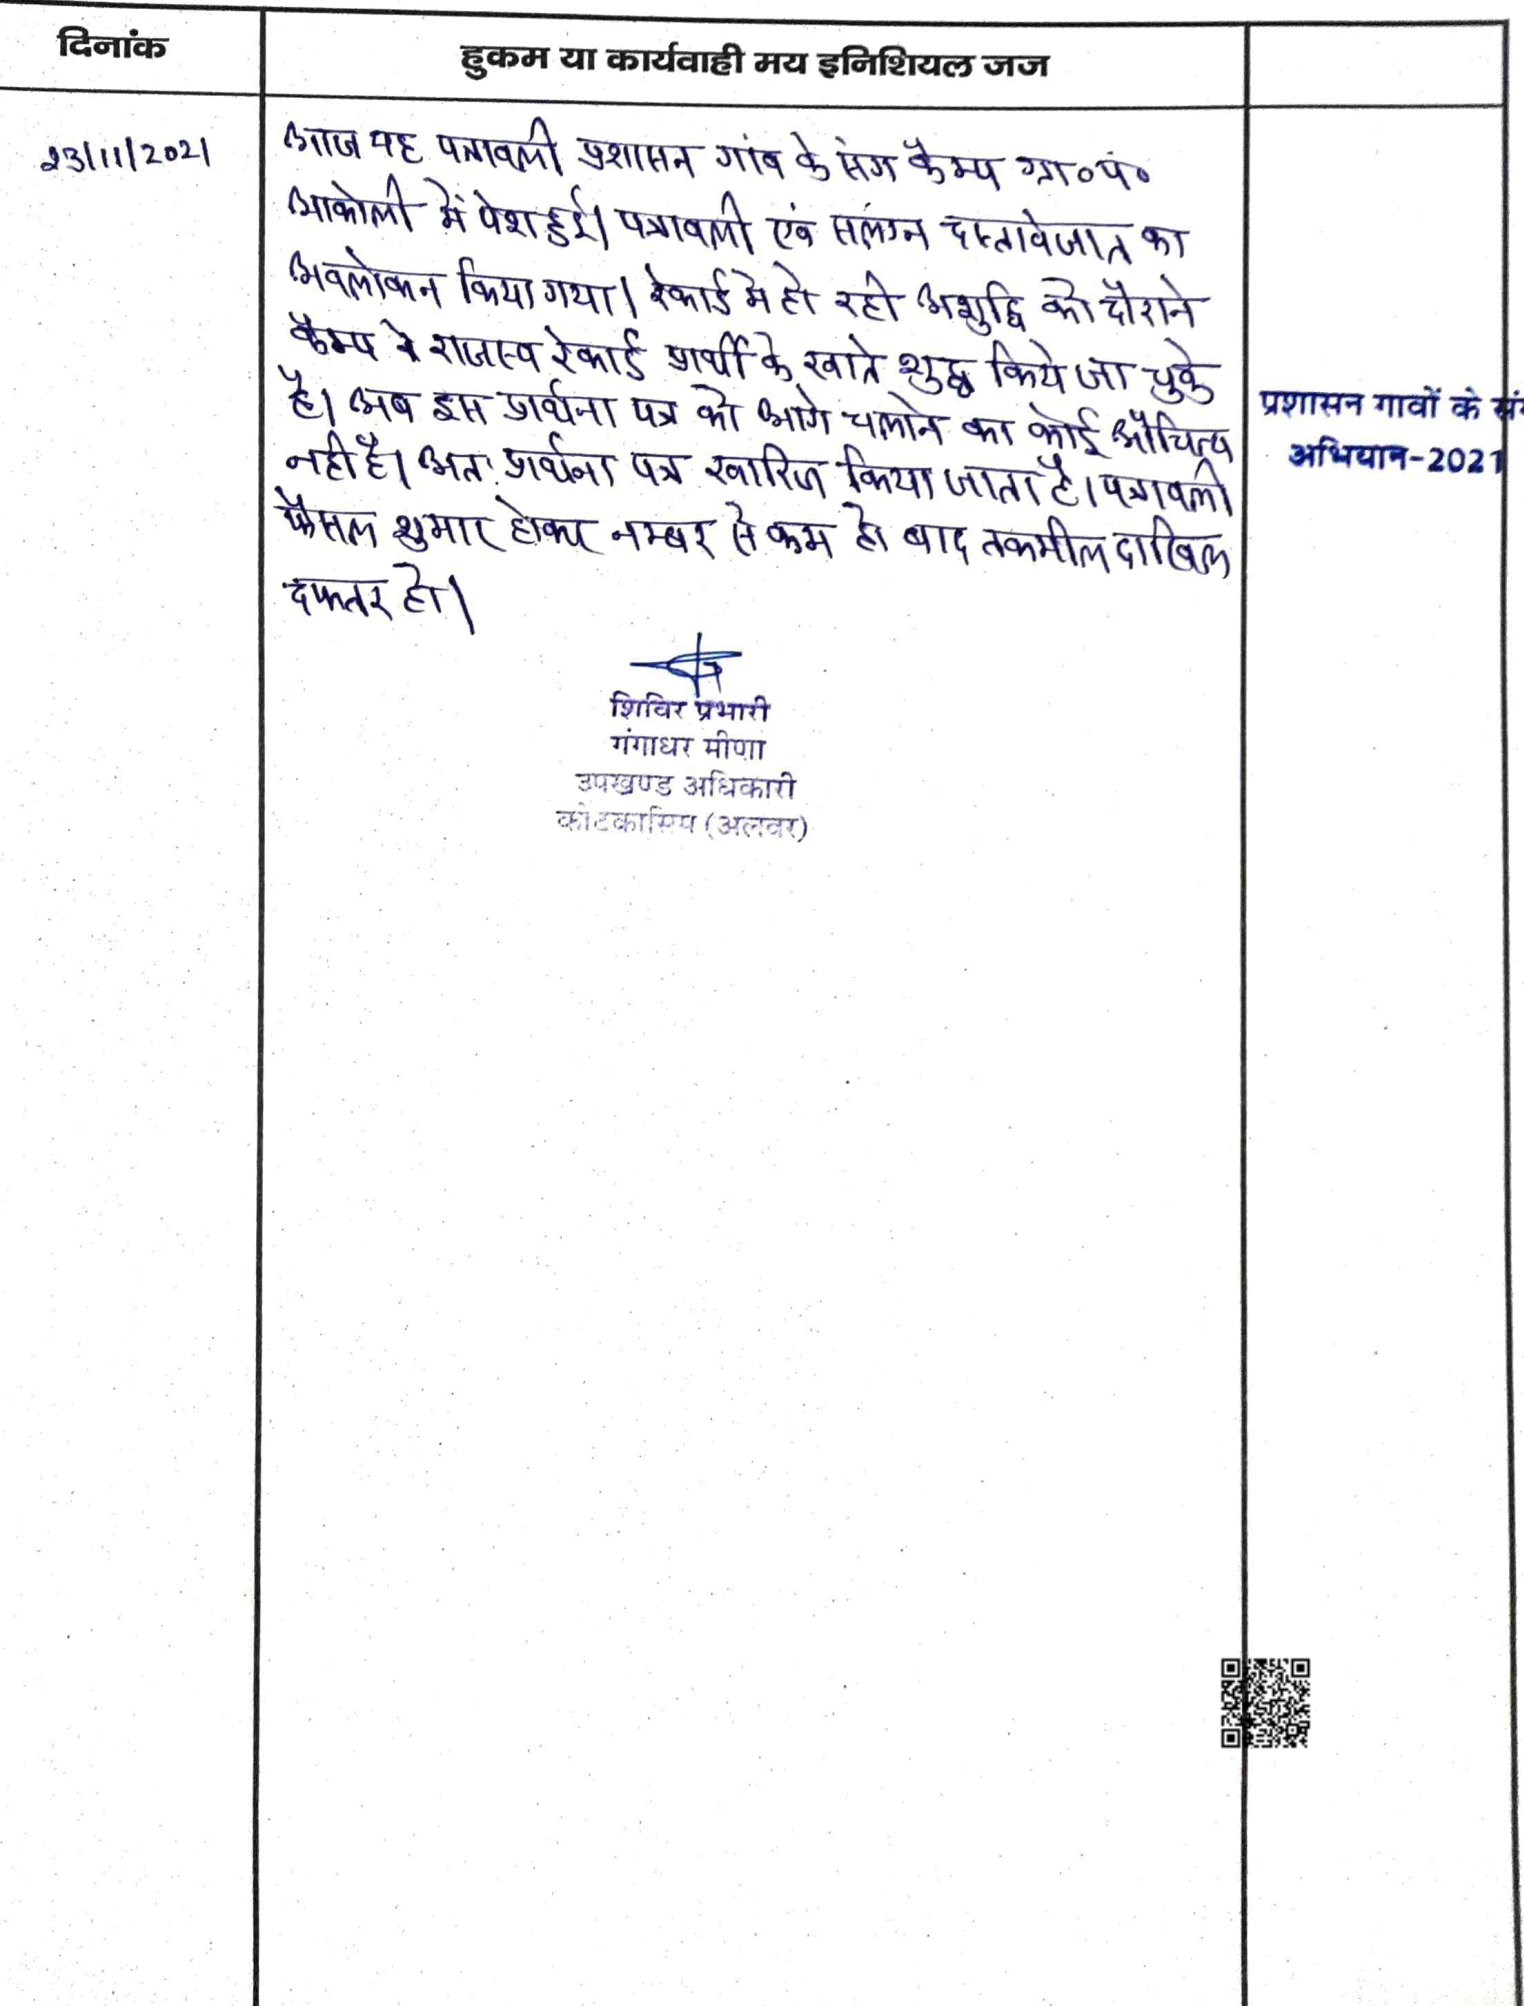 दिनांक
हुकम या कार्यवाही मय इनिशियल जज
23/11/2021
आज यह पत्रावली प्रशासन गांव के संग कैम्प ग्रा०पं०
आकोली में पेश हुई। पत्रावली एवं सलंग्न दस्तावेजात का
अवलोकन किया गया। रेकार्ड मे हो रही अशुद्धि को दौराने
कैम्प राजस्व रेकार्ड प्रार्थी के खाते शुद्ध किये जा चुके
है। अब इस प्रार्थना पत्र को आगे चलाने का कोई औचित्य
नही है। अतः प्रार्थना पत्र खारिज किया जाता है। पत्रावली
फैसल शुमार होकर नम्बर से कम हो बाद तकमील दाखिल
दफ्तर हो।
प्रशासन गावों के संग
अभियान-2021
शिविर प्रभारी
गंगाधर मीणा
उपखण्ड अधिकारी
कोटकासिम (अलवर)